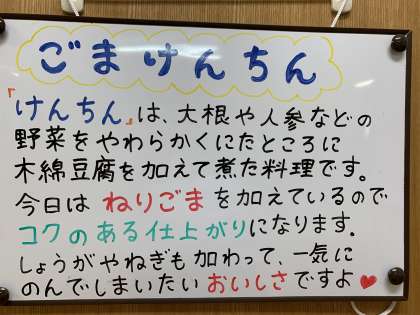 ごまけんちん
『けんちん』は、大根や人参などの
野菜をやわらかくにたところに
木綿豆腐を加えて煮た料理です。
今日はねりごまを加えているので
コクのある仕上がりになります。
しょうがやねぎも加わって、一気に
のんでしまいたいおいしさですよ♥